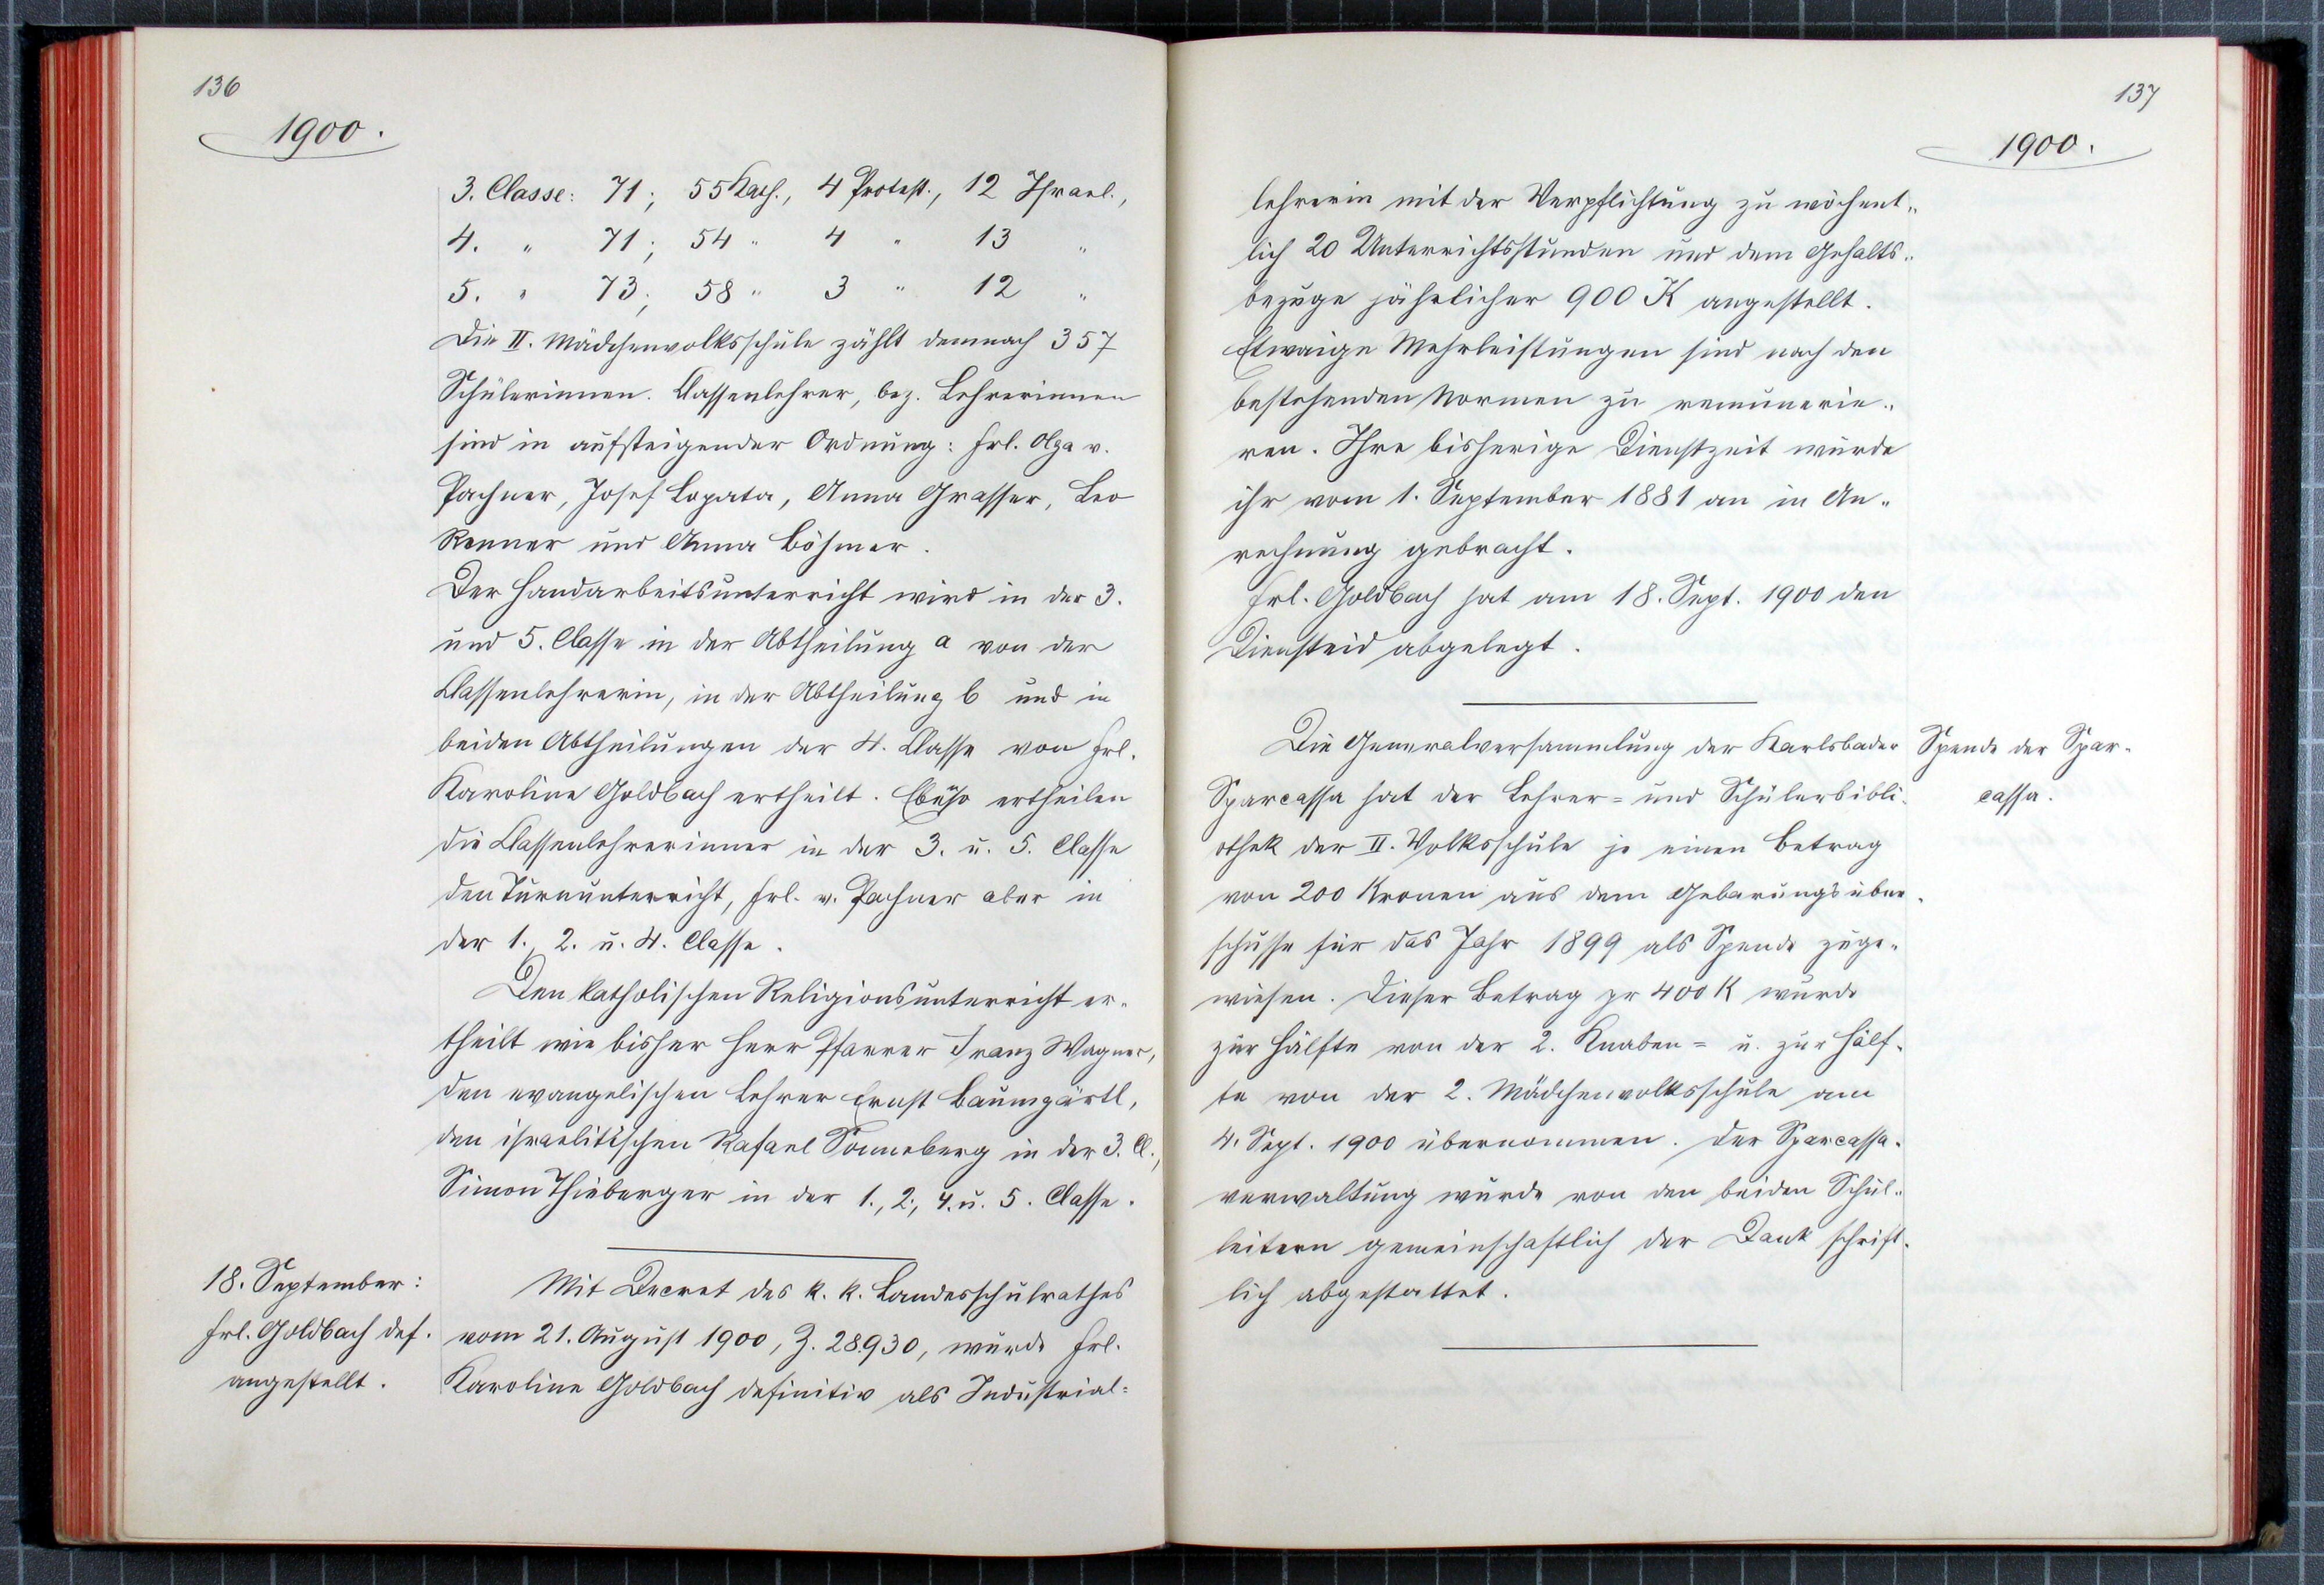 136
1900.
3. Classe: 71; 55 Kath., 4 Protest., 12 Israel.,
4. " 71; 54 " 4 " 13 "
5. " 73; 58 " 3 " 12 "
Die II. Mädchenvolksschule zählt demnach 357
Schülerinnen. Classenlehrer, bez. Lehrerinnen
sind in aufsteigender Ordnung: Frl. Olga v.
Pachner, Josef Lopata, Anna Grasser, Leo
Renner und Anna Böhmer.
Der Handarbeitsunterricht wird in der 3.
und 5. Classe in der Abtheilung a von der
Classenlehrerin, in der Abtheilung b und in
beiden Abtheilungen der 4. Classe von Frl.
Karoline Goldbach ertheilt. Ebenso ertheilen
die Classenlehrerinnen in der 3. u. 5. Classe
den Turnunterricht, Frl. v. Pachner aber in
der 1., 2. u. 4. Classe.
Den katholischen Religionsunterricht er-
theilt wie bisher Herr Pfarrer Franz Wagner,
den evangelischen Lehrer Ernst Baumgärtl,
den israelitischen Rafael Sonneberg in der 3. Cl.,
Simon Thieberger in der 1., 2., 4. u. 5. Classe.
18. September:
Frl. Goldbach def.
angestellt.
Mit Decret des k. k. Landesschulrathes
vom 21. August 1900, Z. 28930, wurde Frl.
Karoline Goldbach definitiv als Industrial-
137
1900.
lehrerin mit der Verpflichtung zu wöchent-
lich 20 Unterrichtsstunden und dem Gehalts-
bezuge jährlicher 900 K angestellt.
Etwaige Mehrleistungen sind nach den
bestehenden Normen zu remunerie-
ren. Ihre bisherige Dienstzeit wurde
ihr vom 1. September 1881 an in An-
rechnung gebracht.
Frl. Goldbach hat am 18. Sept. 1900 den
Diensteid abgelegt.
Spende der Spar-
cassa.
Die Generalversammlung der Karlsbader
Sparcassa hat der Lehrer- und Schülerbibli-
othek der II. Volksschule je einen Betrag
von 200 Kronen aus dem Gebarungsüber-
schusse für das Jahr 1899 als Spende zuge-
wiesen. Dieser Betrag pr 400 K wurde
zur Hälfte von der 2. Knaben- u. zur Hälf-
te von der 2. Mädchenvolksschule am
4. Sept. 1900 übernommen. Der Sparcassa-
verwaltung wurde von den beiden Schul-
leitern gemeinschaftlich der Dank schrift-
lich abgestattet.